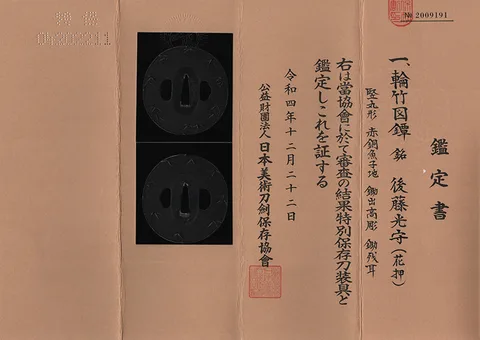 № 2009191
鑑定書
一、輪竹図鐔 銘 後藤光守(花押)
竪丸形 赤銅魚子地 鋤出高彫 鋤残耳
右は當協會に於て審査の結果特別保存刀装具と
鑑定しこれを証する
令和四年十二月二十二日
公益財團法人 日本美術刀劍保存協會